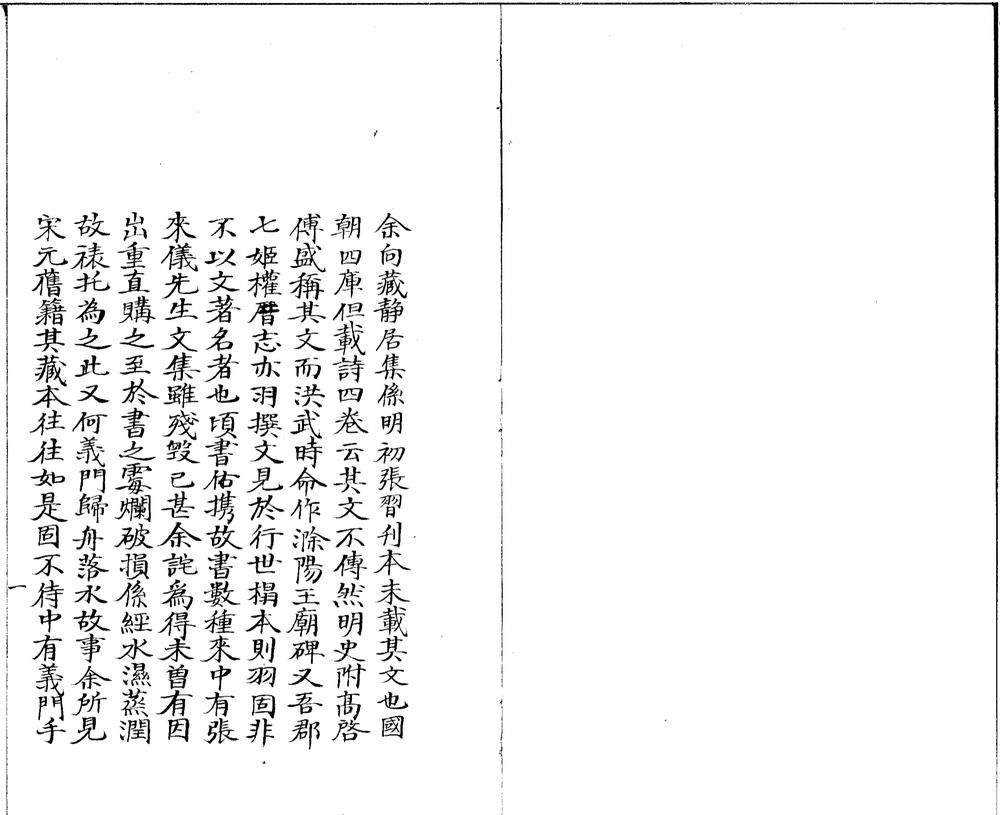 余向藏静居集係明初張習刋本未載其文也國
朝四庫但載詩四卷云其文不傳然明史附髙啓
傳盛稱其文而洪武時命作滁陽王廟碑又吾郡
七姬權厝志亦羽撰文見於行世搨本則羽固非
不以文著名者也頃書估携故書數種來中有張
來儀先生文集雖殘毀已甚余詫爲得未曽有因
出重直購之至於書之霉爛破損係經水濕蒸潤
故裱托為之此又何義門歸舟落水故事余所見
宋元舊籍其藏本往往如是固不待中有義門手
一